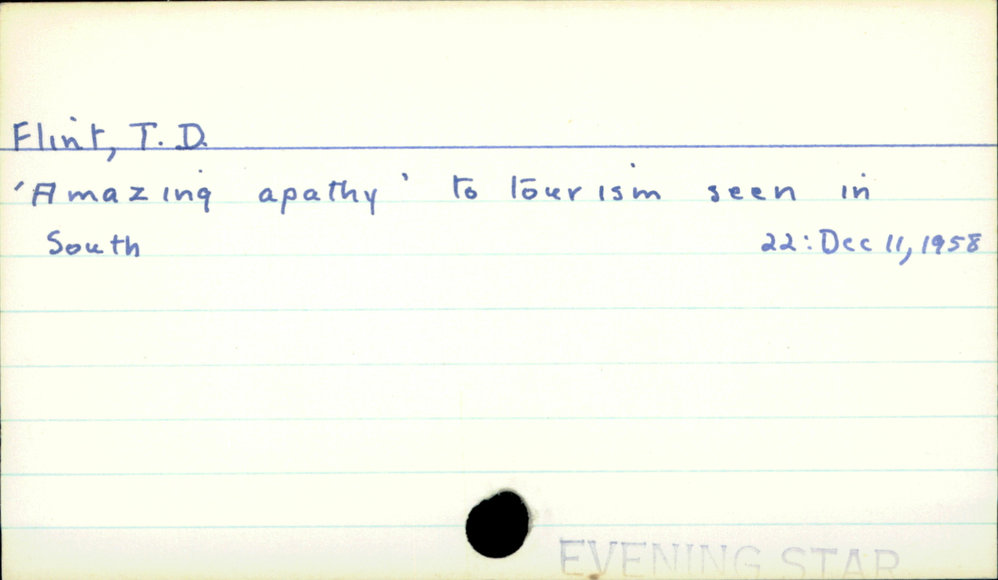 Flint, T. D.
'Amazing apathy' to tourism seen in
South 22: Dec 11, 1958
EVENING STAR